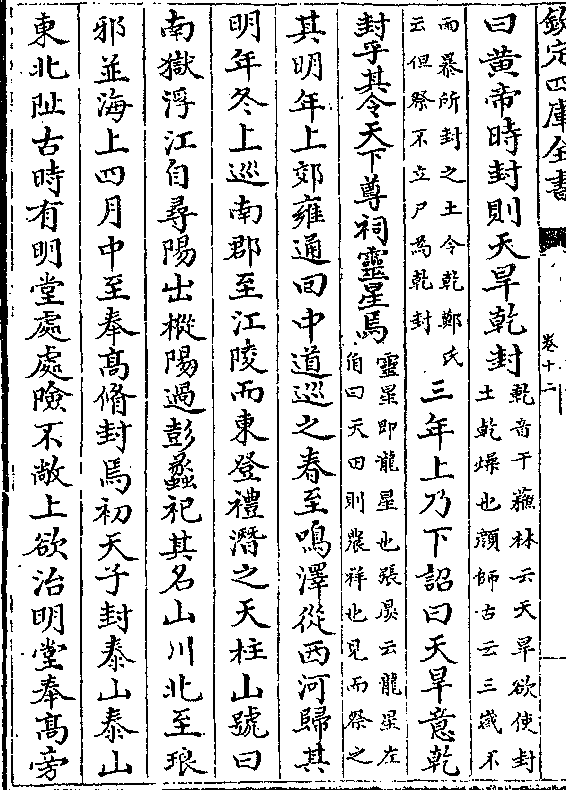 欽定四庫全書
卷十二
曰黄帝時封則天旱乾封
乾音干蘇林云天旱欲使封
土乾燥也顔師古云三歲不
而暴所封之土令乾鄭氏
云但祭不立尸為乾封
三年上乃下詔曰天旱意乾
封乎其令天下尊祠靈星焉
靈星即龍星也張晏云龍星左
角曰天田則農祥也見而祭之
其明年上郊雍通回中道巡之春至鳴澤從西河歸其
明年冬上巡南郡至江陵而東登禮潛之天柱山號曰
南嶽浮江自尋陽出樅陽過彭蠡祀其名山川北至琅
邪並海上四月中至奉髙脩封焉初天子封泰山泰山
東北阯古時有明堂處處險不敞上欲治明堂奉髙旁